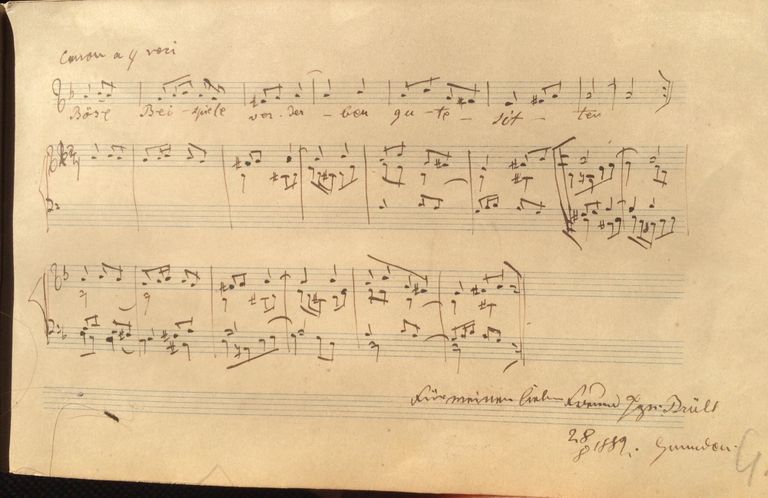 Canon a 4 voci
Böse Bei - spiele ver - der - ben gu - te - sit - ten
Für meinen lieben Freund Ign. Brüll
28/8 1889. Gmunden.